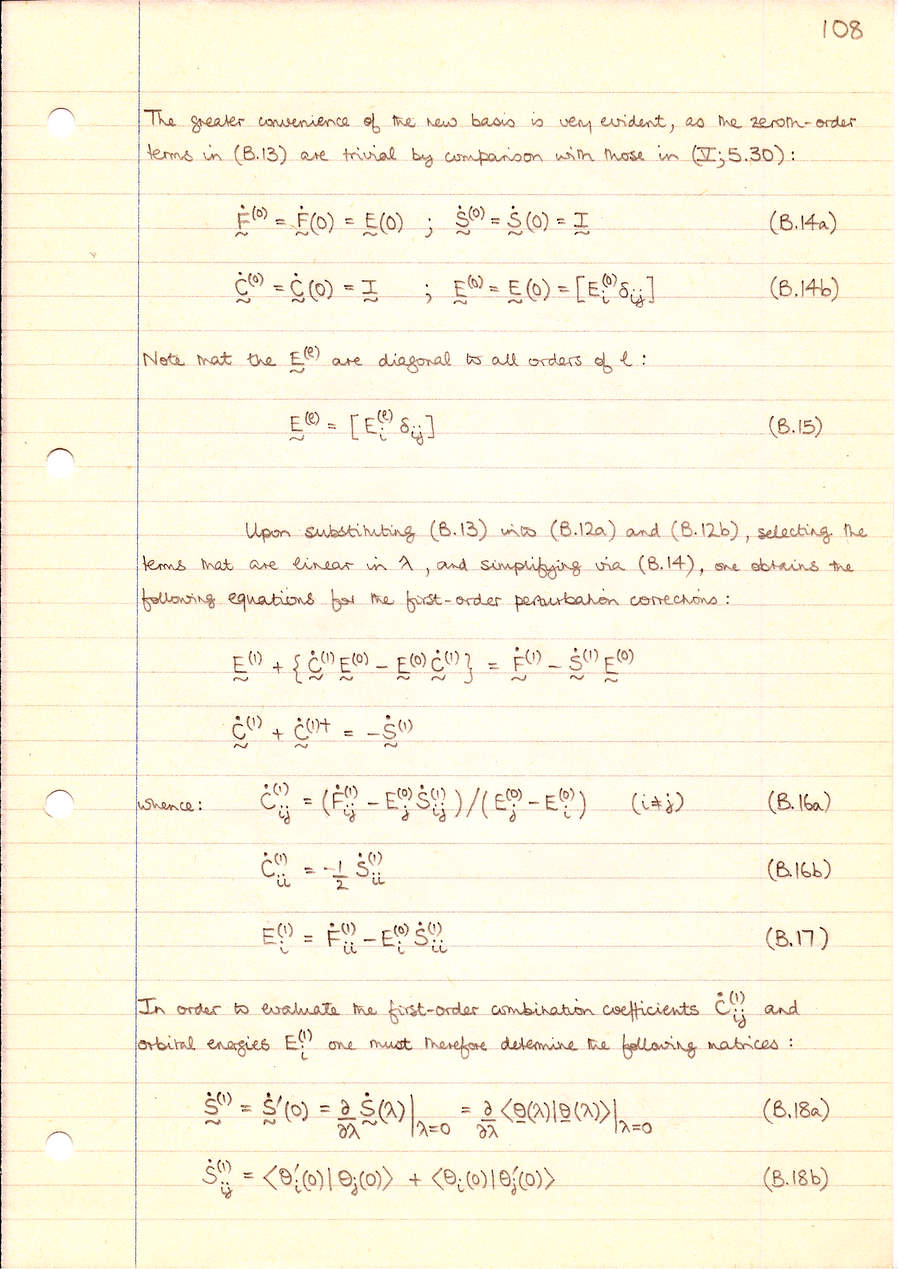 108
The greater convenience of the new basis is very evident, as the zeroth-order
terms in (B.13) are trivial by comparison with those in (V; 5.30) :
Ḟ̰⁽⁰⁾ = Ḟ̰(0) = Ḛ(0) ; Ṡ̰⁽⁰⁾ = Ṡ̰(0) = Ḭ (B.14a)
Ċ̰⁽⁰⁾ = Ċ̰(0) = Ḭ ; Ḛ⁽⁰⁾ = Ḛ(0) = [E_i⁽⁰⁾ δ_ij] (B.14b)
Note that the Ḛ⁽ˡ⁾ are diagonal to all orders of l :
Ḛ⁽ˡ⁾ = [E_i⁽ˡ⁾ δ_ij] (B.15)
Upon substituting (B.13) into (B.12a) and (B.12b), selecting the
terms that are linear in λ, and simplifying via (B.14), one obtains the
following equations for the first-order perturbation corrections :
Ḛ⁽¹⁾ + {Ċ̰⁽¹⁾ Ḛ⁽⁰⁾ − Ḛ⁽⁰⁾ Ċ̰⁽¹⁾} = Ḟ̰⁽¹⁾ − Ṡ̰⁽¹⁾ Ḛ⁽⁰⁾
Ċ̰⁽¹⁾ + Ċ̰⁽¹⁾† = −Ṡ̰⁽¹⁾
whence : Ċ_ij⁽¹⁾ = (Ḟ_ij⁽¹⁾ − E_j⁽⁰⁾ Ṡ_ij⁽¹⁾) / (E_j⁽⁰⁾ − E_i⁽⁰⁾) (i ≠ j) (B.16a)
Ċ_ii⁽¹⁾ = −1/2 Ṡ_ii⁽¹⁾ (B.16b)
E_i⁽¹⁾ = Ḟ_ii⁽¹⁾ − E_i⁽⁰⁾ Ṡ_ii⁽¹⁾ (B.17)
In order to evaluate the first-order combination coefficients Ċ_ij⁽¹⁾ and
orbital energies E_i⁽¹⁾ one must therefore determine the following matrices :
Ṡ̰⁽¹⁾ = Ṡ̰′(0) = ∂/∂λ Ṡ̰(λ)|_λ=0 = ∂/∂λ ⟨θ̲(λ)|θ̲(λ)⟩|_λ=0 (B.18a)
Ṡ_ij⁽¹⁾ = ⟨θ_i′(0)|θ_j(0)⟩ + ⟨θ_i(0)|θ_j′(0)⟩ (B.18b)